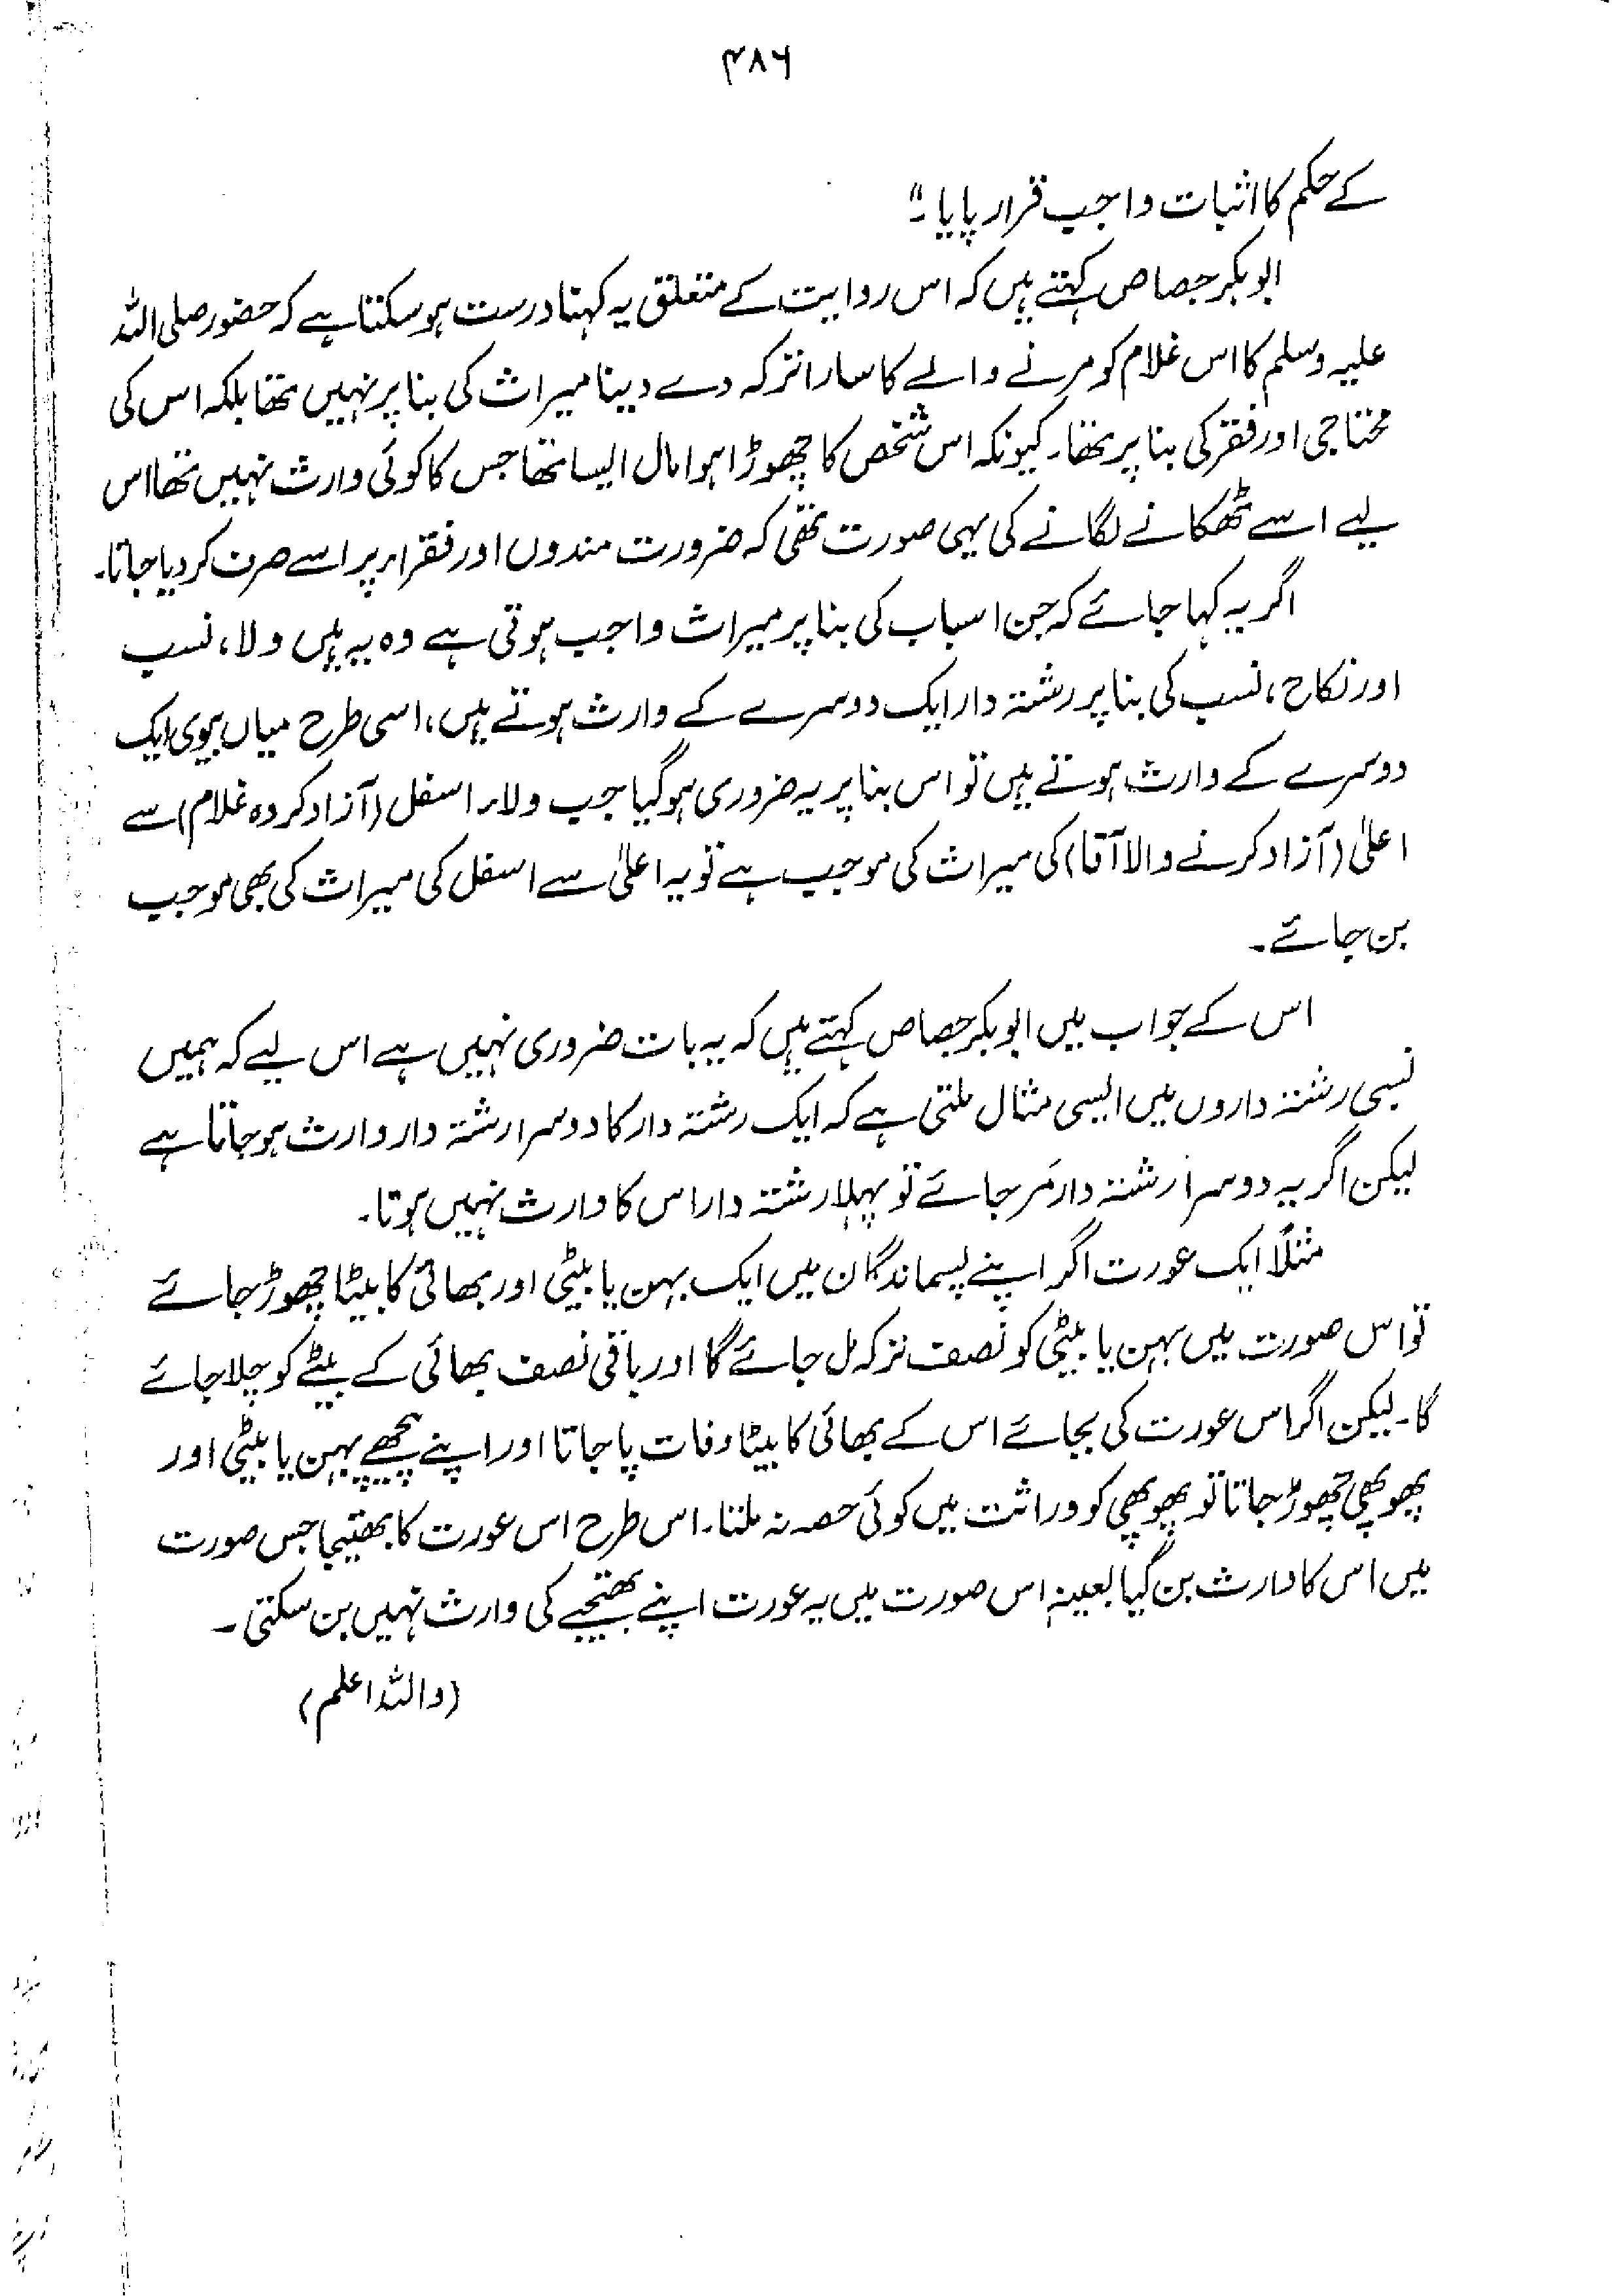 ۴۸۶
کے حکم کا اثبات واجب قرار پایا۔"
ابوبکر جصاص کہتے ہیں کہ اس روایت کے متعلق یہ کہنا درست ہو سکتا ہے کہ حضور صلی اللہ
علیہ وسلم کا اس غلام کو مرنے والے کا سارا ترکہ دے دینا میراث کی بنا پر نہیں تھا بلکہ اس کی
محتاجی اور فقر کی بنا پر تھا۔ کیونکہ اس شخص کا چھوڑا ہوا مال ایسا تھا جس کا کوئی وارث نہیں تھا اس
لیے اسے ٹھکانے لگانے کی یہی صورت تھی کہ ضرورت مندوں اور فقراء پر اسے صرف کر دیا جاتا۔
اگر یہ کہا جائے کہ جن اسباب کی بنا پر میراث واجب ہوتی ہے وہ یہ ہیں ولاء، نسب
اور نکاح، نسب کی بنا پر رشتہ دار ایک دوسرے کے وارث ہوتے ہیں، اسی طرح میاں بیوی ایک
دوسرے کے وارث ہوتے ہیں تو اس بنا پر یہ ضروری ہو گیا جب ولاء اسفل (آزاد کردہ غلام) سے
اعلیٰ (آزاد کرنے والا آقا) کی میراث کی موجب ہے تو یہ اعلیٰ سے اسفل کی میراث کی بھی موجب
بن جائے۔
اس کے جواب میں ابوبکر جصاص کہتے ہیں کہ یہ بات ضروری نہیں ہے اس لیے کہ ہمیں
نسبی رشتہ داروں میں ایسی مثال ملتی ہے کہ ایک رشتہ دار کا دوسرا رشتہ دار وارث ہو جاتا ہے
لیکن اگر یہ دوسرا رشتہ دار مَر جائے تو پہلا رشتہ دار اس کا وارث نہیں ہوتا۔
مثلاً ایک عورت اگر اپنے پسماندگان میں ایک بہن یا بیٹی اور بھائی کا بیٹا چھوڑ جائے
تو اس صورت میں بہن یا بیٹی کو نصف ترکہ مل جائے گا اور باقی نصف بھائی کے بیٹے کو چلا جائے
گا۔ لیکن اگر اس عورت کی بجائے اس کے بھائی کا بیٹا وفات پا جاتا اور اپنے پیچھے بہن یا بیٹی اور
پھوپھی چھوڑ جاتا تو پھوپھی کو وراثت میں کوئی حصہ نہ ملتا۔ اس طرح اس عورت کا بھتیجا جس صورت
میں اس کا وارث بن گیا بعینہٖ اس صورت میں یہ عورت اپنے بھتیجے کی وارث نہیں بن سکتی۔
(واللہ اعلم)